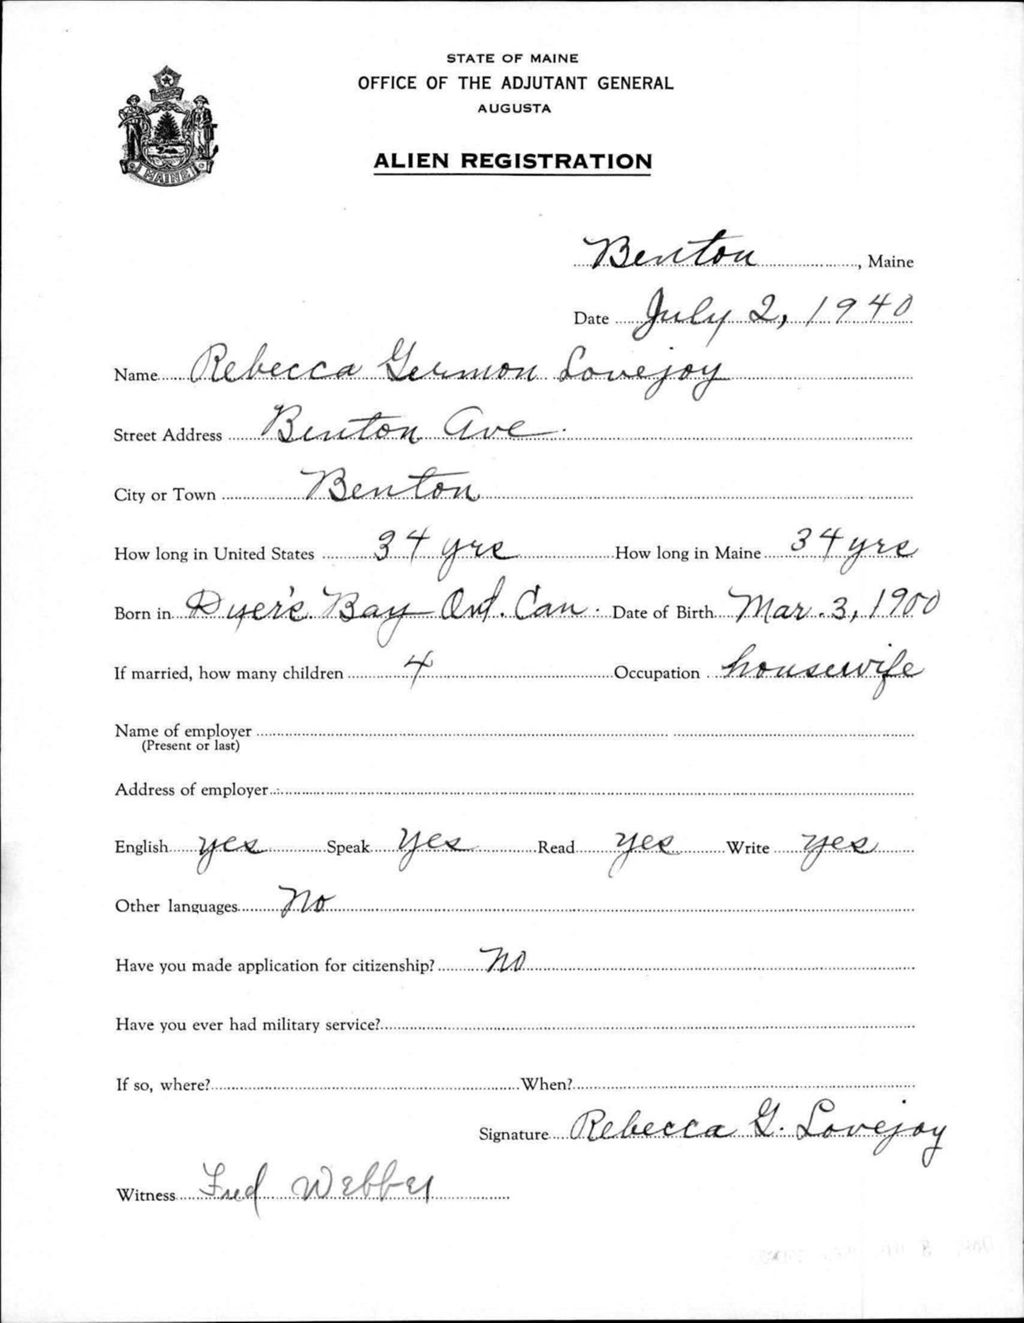 STATE OF MAINE
OFFICE OF THE ADJUTANT GENERAL
AUGUSTA
ALIEN REGISTRATION
MAINE
Benton, Maine
Date July 2, 1940
Name Rebecca Germon Lovejoy
Street Address Benton Ave.
City or Town Benton
How long in United States 34 yrs How long in Maine 34 yrs
Born in Dyer's Bay Ont. Can. Date of Birth Mar. 3, 1900
If married, how many children 4 Occupation housewife
Name of employer
(Present or last)
Address of employer
English yes Speak yes Read yes Write yes
Other languages No
Have you made application for citizenship? No
Have you ever had military service?
If so, where? When?
Signature Rebecca G. Lovejoy
Witness Fred Webber